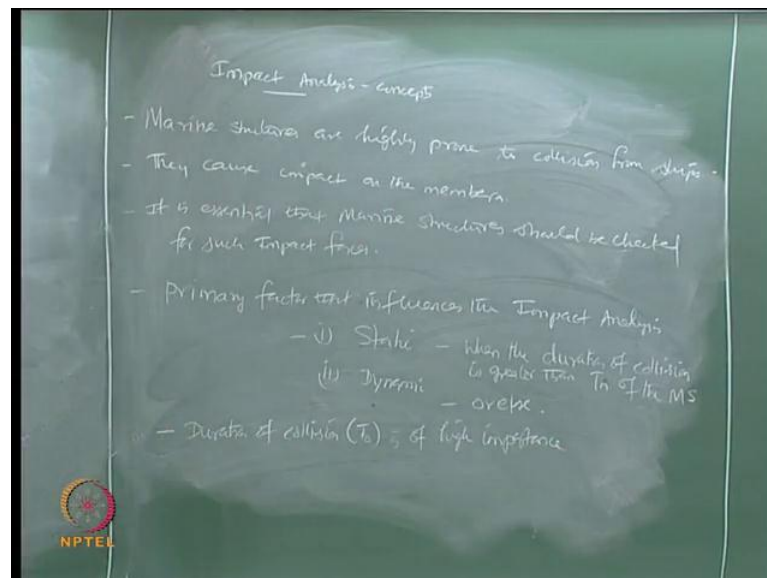 Impact Analysis - concepts
- Marine structures are highly prone to collision from ships.
- They cause impact on the members.
- It is essential that Marine structures should be checked
for such Impact forces.
- Primary factor that influences the Impact Analysis
- i) Static - when the duration of collision
is greater than Tn of the MS
(ii) Dynamic
- or else.
- Duration of collision (To) is of high importance
NPTEL